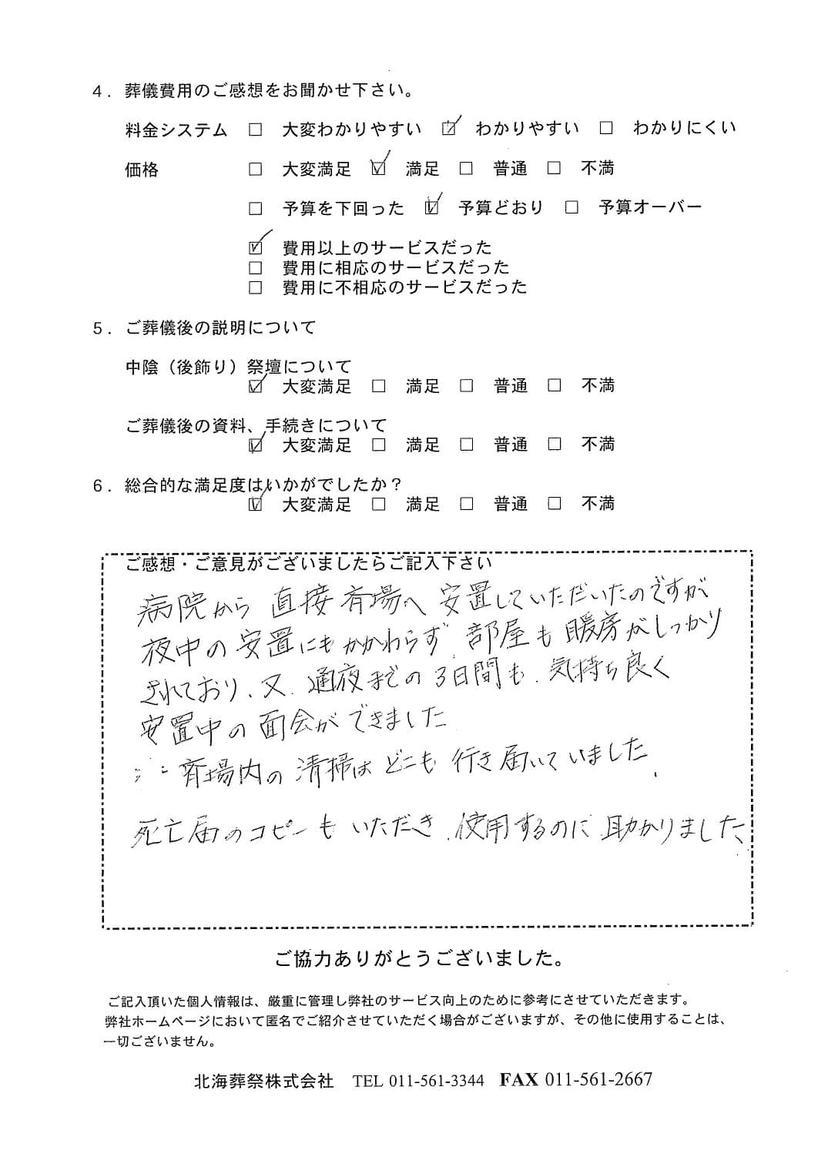 4．葬儀費用のご感想をお聞かせ下さい。
料金システム □ 大変わかりやすい ☑ わかりやすい □ わかりにくい
価格 □ 大変満足 ☑ 満足 □ 普通 □ 不満
□ 予算を下回った ☑ 予算どおり □ 予算オーバー
☑ 費用以上のサービスだった
□ 費用に相応のサービスだった
□ 費用に不相応のサービスだった
5．ご葬儀後の説明について
中陰（後飾り）祭壇について
☑ 大変満足 □ 満足 □ 普通 □ 不満
ご葬儀後の資料、手続きについて
☑ 大変満足 □ 満足 □ 普通 □ 不満
6．総合的な満足度はいかがでしたか？
☑ 大変満足 □ 満足 □ 普通 □ 不満
ご感想・ご意見がございましたらご記入下さい
病院から直接斉場へ安置していただいたのですが
夜中の安置にもかかわらず、部屋も暖房がしっかり
されており、又、通夜までの3日間も、気持ち良く
安置中の面会ができました
斉場内の清掃はどこも行き届いていました、
死亡届のコピーもいただき、使用するのに助かりました、
ご協力ありがとうございました。
ご記入頂いた個人情報は、厳重に管理し弊社のサービス向上のために参考にさせていただきます。
弊社ホームページにおいて匿名でご紹介させていただく場合がございますが、その他に使用することは、
一切ございません。
北海葬祭株式会社 TEL 011-561-3344 FAX 011-561-2667